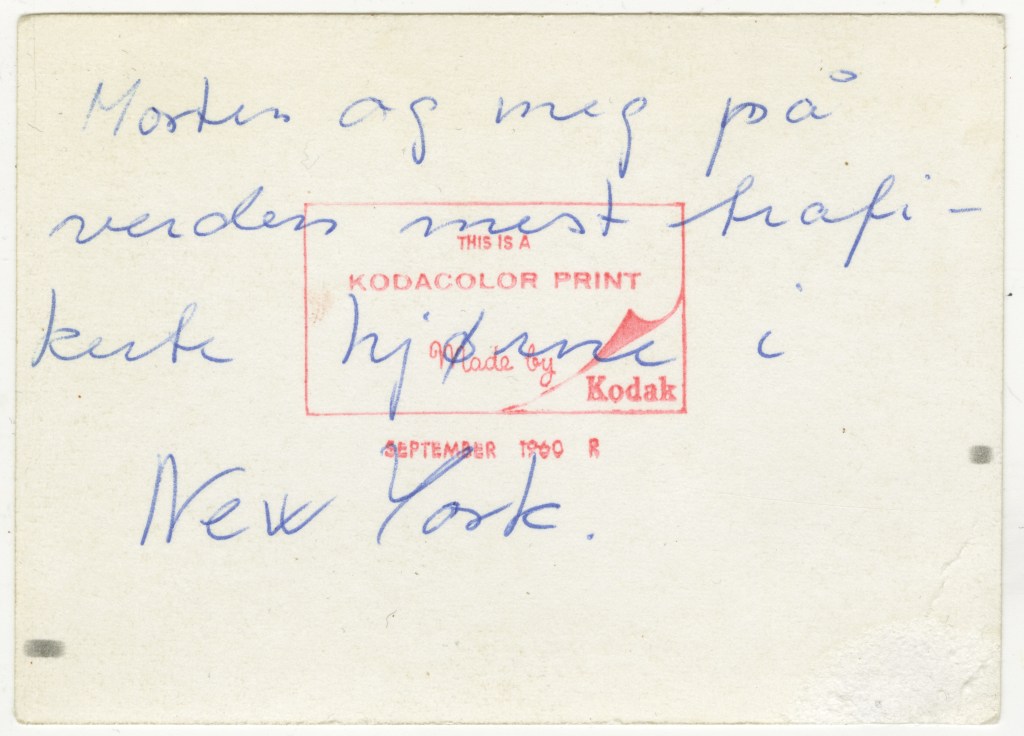 Morten og meg på
verdens mest trafi-
kerte hjørne i
New York.
THIS IS A
KODACOLOR PRINT
Made by
Kodak
SEPTEMBER 1960 R